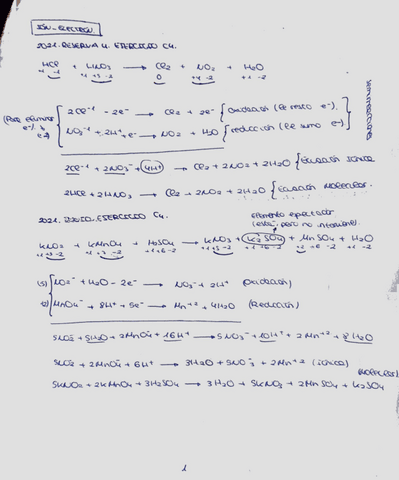 IÓN-ELECTRÓN.
2021. RESERVA 4. EJERCICIO C4.
HCl + HNO3 → Cl2 + NO2 + H2O
+1 -1 +1 +5 -2 0 +4 -2 +1 -2
2Cl-1 - 2e- → Cl2 + 2e- (Oxidación (Se resta e-).
NO3-1 + 2H+ + e- → NO2 + H2O (reducción (Se suma e-)
2Cl-1 + 2NO3- + 4H+ → Cl2 + 2NO2 + 2H2O (Ecuación iónica
2HCl + 2HNO3 → Cl2 + 2NO2 + 2H2O (Ecuación molecular.
Elemento espectador
(está, pero no interviene).
2021. EJERCICIO C4.
KNO2 + KMnO4 + H2SO4 → KNO3 + K2SO4 + MnSO4 + H2O
+1 +3 -2 +1 +7 -2 +1 +6 -2 +1 +5 -2 +1 +6 -2 +2 +6 -2 +1 -2
(5) NO2- + H2O - 2e- → NO3- + 2H+ (Oxidación)
(2) MnO4- + 8H+ + 5e- → Mn+2 + 4H2O (Reducción)
5NO2- + 5H2O + 2MnO4- + 16H+ → 5NO3- + 10H+ + 2Mn+2 + 8H2O
5NO2- + 2MnO4- + 6H+ → 3H2O + 5NO3- + 2Mn+2 (iónica)
5KNO2 + 2KMnO4 + 3H2SO4 → 3H2O + 5KNO3 + 2MnSO4 + K2SO4
1